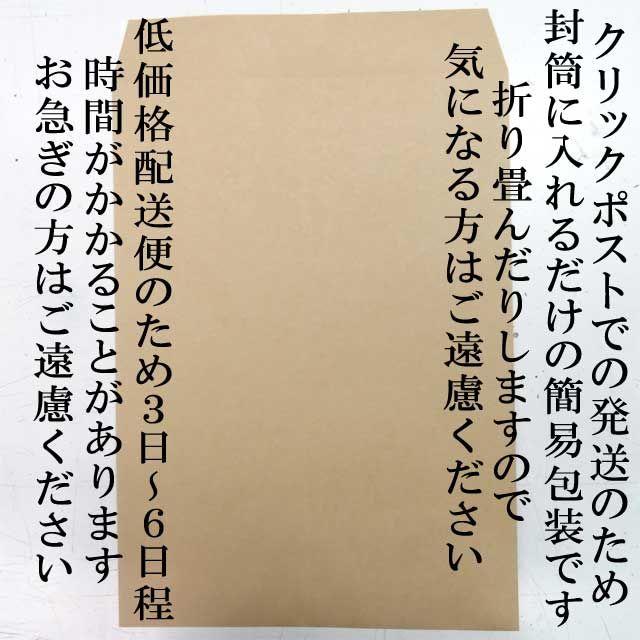 クリックポストでの発送のため
封筒に入れるだけの簡易包装です
折り畳んだりしますので
気になる方はご遠慮ください
低価格配送便のため3日～6日程
時間がかかることがあります
お急ぎの方はご遠慮ください